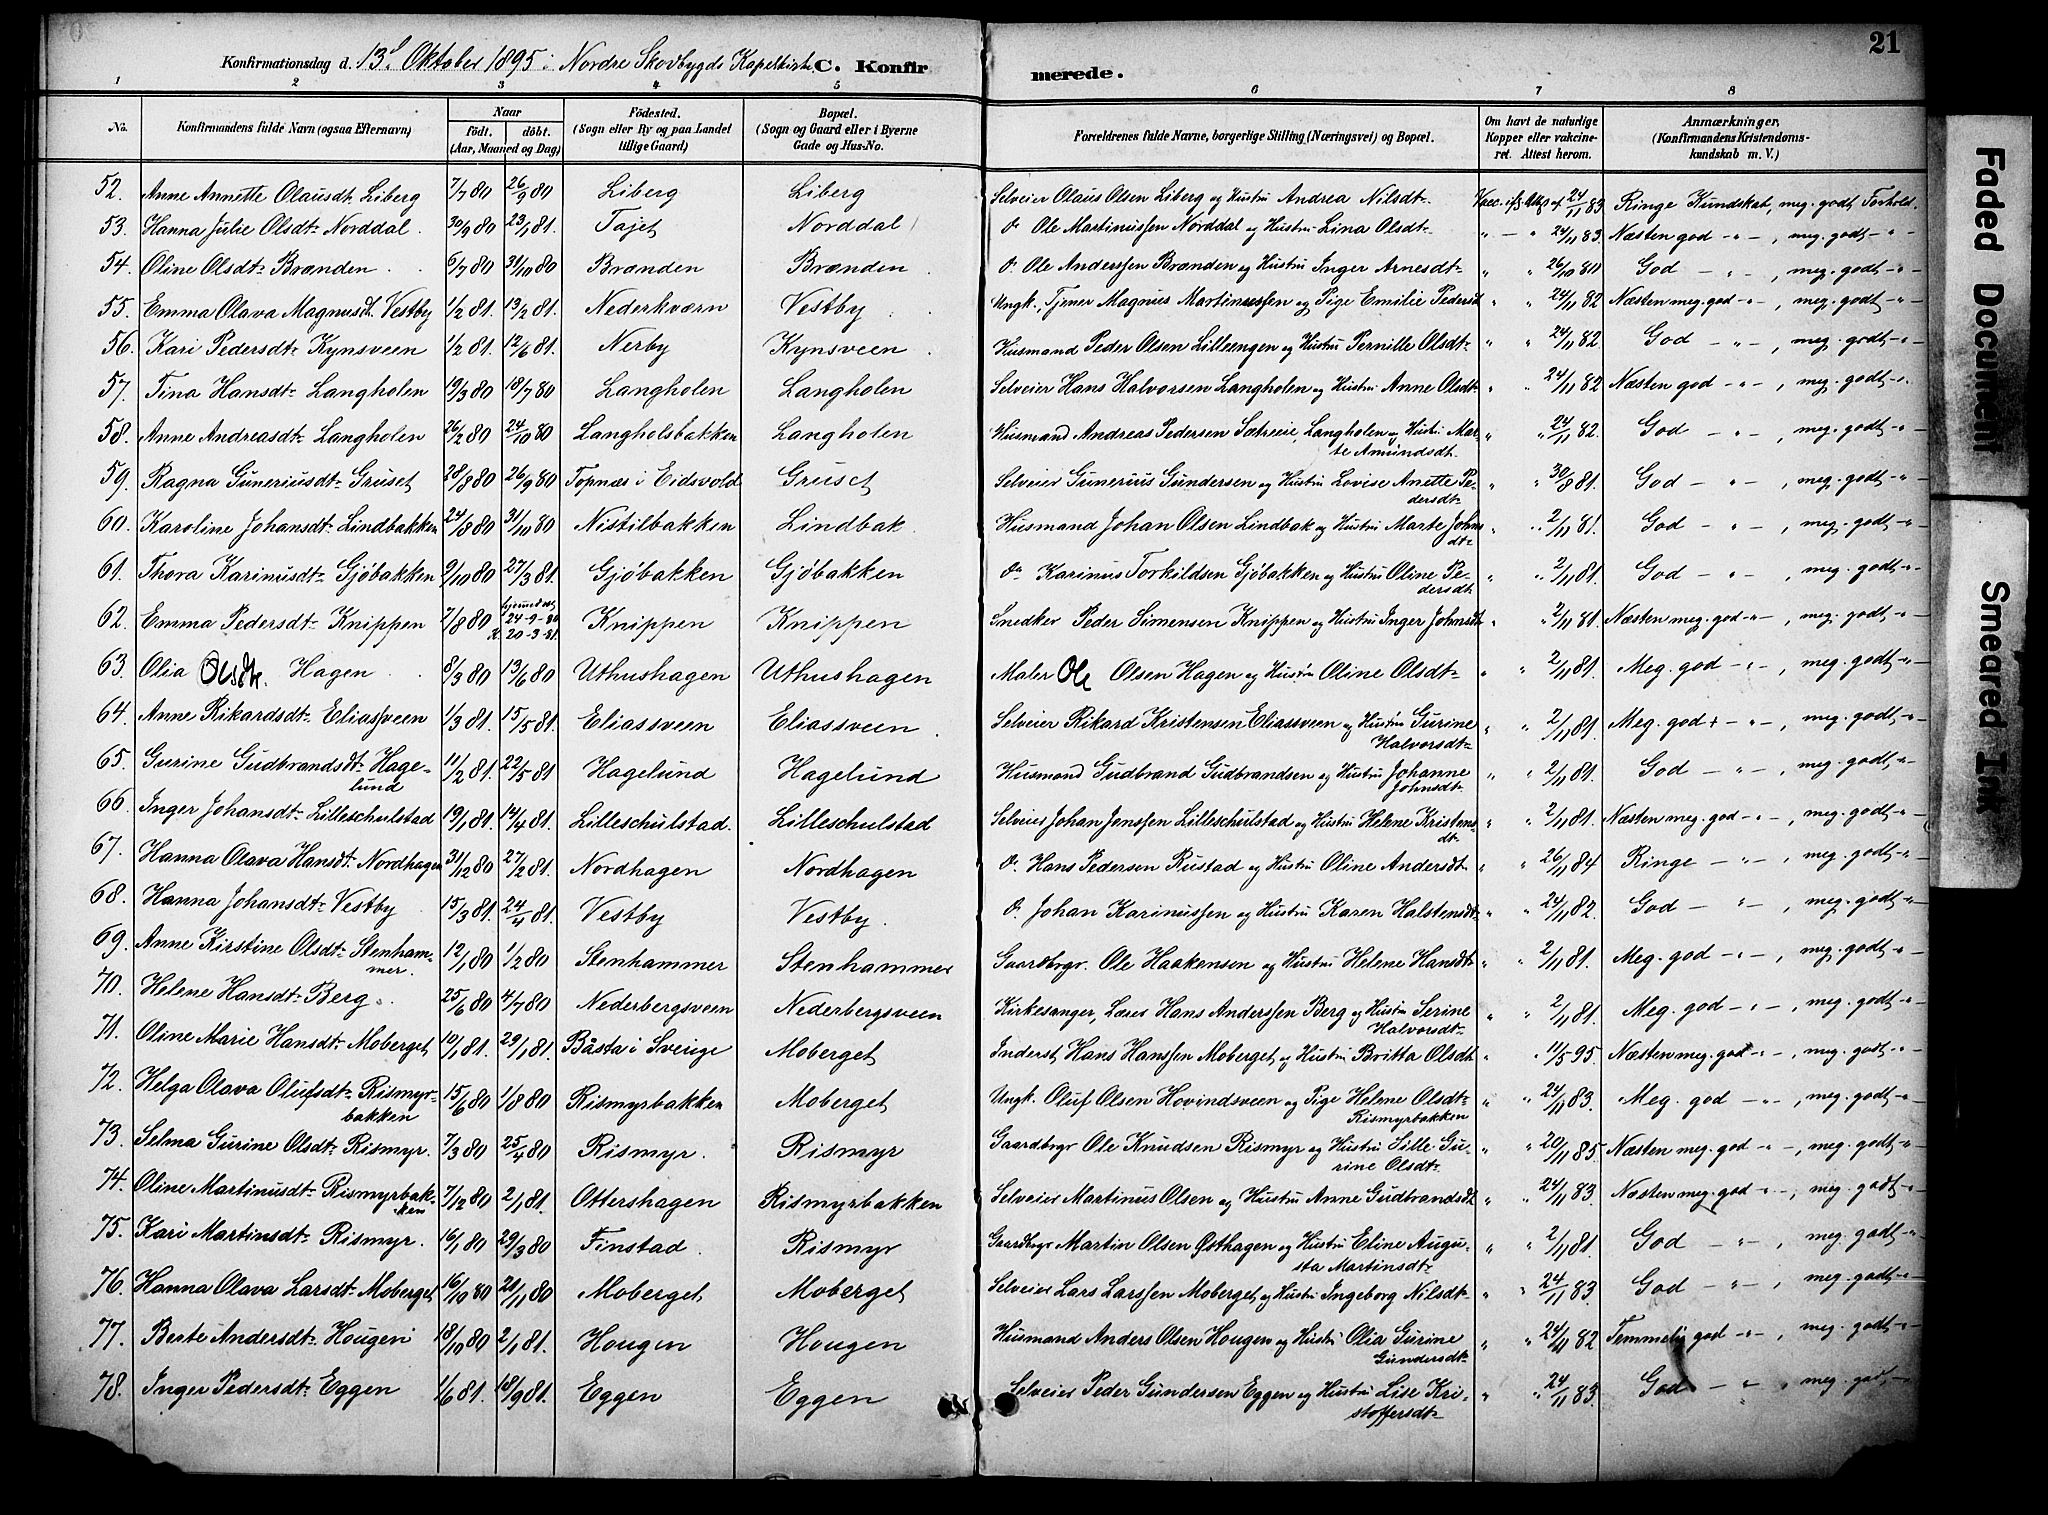 21
Konfirmationsdag d. 13d Oktober 1895 i Nordre Skovbygds Kapelkirke. C. Konfirmerede.
1 2 3 4 5 6 7 8
No. Konfirmandens fulde Navn (ogsaa Efternavn) Naar födt. döbt. (Aar, Maaned og Dag) Födested. (Sogn eller By og paa Landet tillige Gaard) Bopæl. (Sogn og Gaard eller i Byerne Gade og Hus-No. Forældrenes fulde Navne, borgerlige Stilling (Næringsvei) og Bopæl. Om havt de naturlige Kopper eller vakcineret. Attest herom. Anmærkninger. (Konfirmandens Kristendomskundskab m. V.)
52. Anne Annette Olausdt. Liberg 7/7 80 26/9 80 Liberg Liberg Selveier Olaus Olsen Liberg og Hustru Andrea Nilsdt. Vacc. 24/11 83 Ringe Kundskab, meg. godt Forhold.
53. Hanna Julie Olsdt. Norddal 30/9 80 23/1 81. Tajet Norddal do Ole Martinussen Norddal og Hustru Lina Olsdt. " - " 24/11 83. Næsten god - " - , meg. godt - " -
54. Oline Olsdt. Brænden 6/7 80 31/10 80 Brænden Brænden do Ole Anderssen Brænden og Hustru Inger Arnesdt. " " 26/10 80 God - " - , meg. godt - " -
55. Emma Olava Magnusdt. Vestby 1/2 81. 13/2 81. Nederkværn Vestby Ungk., Tjener Magnus Martinussen og Pige Emilie Pedersdt " " 24/11 82 Næsten meg. god - " - , meg. godt - " -
56. Kari Pedersdt. Kynsveen 1/2 81. 12/6 81. Nerby Kynsveen Husmand Peder Olsen Lilleengen og Hustru Pernille Olsdt. " " 24/11 82. God - " - , meg. godt - " -
57. Tina Hansdt. Langholen 19/3 80 18/7 80 Langholen Langholen Selveier Hans Halvorsen Langholen og Hustru Anne Olsdt. " " 24/11 82 Næsten god - " - , meg. godt - " -
58. Anne Andreasdt. Langholen 26/2 80 24/10 80 Langholsbakken Langholen Husmand Andreas Pedersen Sætreeie, Langholen og Hustru Marte Amundsdt. " " 24/11 82. God - " - , meg. godt - " -
59. Ragna Guneriusdt. Gruset 28/8 80 26/9 80 Topnæs i Eidsvold Gruset Selveier Gunerius Gundersen og Hustru Lovise Anette Pedersdt. " " 30/8 81. God - " - , meg. godt - " -
60. Karoline Johansdt. Lindbakken 24/8 80 31/10 80 Nistilbakken Lindbak Husmand Johan Olsen Lindbak og Hustru Marte Johnsdt. " " 2/11 81. God - " - , meg. godt - " -
61. Thora Karinusdt. Gjöbakken 9/10 80 27/3 81. Gjöbakken Gjöbakken do Karinus Torkildsen Gjöbakken og Hustru Oline Pedersdt. " " 2/11 81. God - " - , meg. godt - " -
62. Emma Pedersdt. Knippen 7/8 80 hjemmedøbt 24-9-80 K. 20-3-81. Knippen Knippen Snedker Peder Simensen Knippen og Hustru Inger Johnsdt. " " 2/11 81. Næsten meg. god - " - , meg. godt - " -
63. Olia Olsdtr. Hagen 8/3 80 13/6 80 Uthushagen Uthushagen Maler Ole Olsen Hagen og Hustru Oline Olsdt. " " 2/11 81. Meg. god - " - , meg. godt - " -
64. Anne Rikardsdt. Eliassveen 1/3 81. 15/5 81. Eliassveen Eliassveen Selveier Rikard Kristensen Eliassveen og Hustru Gurine Halvorsdt. " " 2/11 81. Meg. god - " - , meg. godt - " -
65. Gurine Gudbrandsdt. Hagelund 11/2 81. 22/5 81 Hagelund Hagelund Husmand Gudbrand Gudbrandsen og Hustru Johanne Johnsdt. " " 2/11 81. God - " - , meg. godt - " -
66. Inger Johansdt. Lilleschulstad 19/1 81. 14/4 81. Lilleschulstad. Lilleschulstad Selveier Johan Jenssen Lilleschulstad og Hustru Helene Kristensdt. " " 2/11 81. Næsten meg. god - " - , meg. godt - " -
67. Hanna Olava Hansdt. Nordhagen 31/12 80 27/2 81. Nordhagen Nordhagen do Hans Pedersen Rustad og Hustru Oline Andersdt. " " 26/11 84 Ringe - " - , meg. godt - " -
68. Hanna Johansdt. Vestby 15/3 81. 24/4 81. Vestby Vestby. do Johan Karinussen og Hustru Karen Halstensdt. " " 24/11 82. God - " - , meg. godt - " -
69. Anne Kirstine Olsdt. Stenhammer. 12/1 80 1/2 80 Stenhammer Stenhammer Gaardbrgr. Ole Haakensen og Hustru Helene Hansdt. " " 2/11 81. Meg. god - " - , meg. godt - " -
70. Helene Hansdt. Berg 25/6 80 4/7 80 Nederbergsveen Nederbergsveen Kirkesanger, Lærer Hans Anderssen Berg og Hustru Serine Halvorsdt. " " 2/11 81. Meg. god - " - , meg. godt - " -
71. Oline Marie Hansdt. Moberget 19/1 81. 29/1 81. Båsta i Sverige Moberget Inderst Hans Hanssen Moberget og Hustru Britta Olsdt. " " 11/5 95. Næsten meg. god - " - , meg. godt - " -
72. Helga Olava Olufsdt. Rismyrbakken 15/6 80 1/8 80 Rismyrbakken Moberget Ungk. Oluf Olsen Hovindsveen og Pige Helene Olsdt. Rismyrbakken " " 24/11 83. Meg. god - " - , meg. godt - " -
73. Selma Gurine Olsdt. Rismyr. 7/3 80 25/4 80 Rismyr. Rismyr Gaardbrgr Ole Knudsen Rismyr og Hustru Sille Gurine Olsdt. " " 20/11 85. Næsten meg. god - " - , meg. godt - " -
74. Oline Martinusdt. Rismyrbakken 7/12 80 2/1 81. Ottershagen Rismyrbakken Selveier Martinus Olsen og Hustru Anne Gudbrandsdt. " " 24/11 83. Næsten meg. god - " - , meg. godt - " -
75. Kari Martinsdt. Rismyr. 16/1 80 29/3 80 Finstad. Rismyr Gaardbrgr Martin Olsen Østhagen og Hustru Eline Augusta Martinsdt. " " 2/11 81. God - " - , meg. godt - " -
76. Hanna Olava Larsdt. Moberget 16/10 80 20/11 80 Moberget Moberget Selveier Lars Larssen Moberget, og Hustru Ingeborg Nilsdt. " " 24/11 83. God - " - , meg. godt - " -
77. Berte Andersdt. Hougen 18/10 80 2/1 81. Hougen Hougen Husmand Anders Olsen Hougen og Hustru Olia Gurine Gundersdt. " " 24/11 82 Temmelig god - " - , meg. godt - " -
78. Inger Pedersdt. Eggen 1/6 81. 18/9 81. Eggen Eggen Selveier Peder Gunderssen Eggen og Hustru Lise Kristoffersdt. " " 24/11 83. God - " - , meg. godt - " -
Faded Document
Smeared Ink